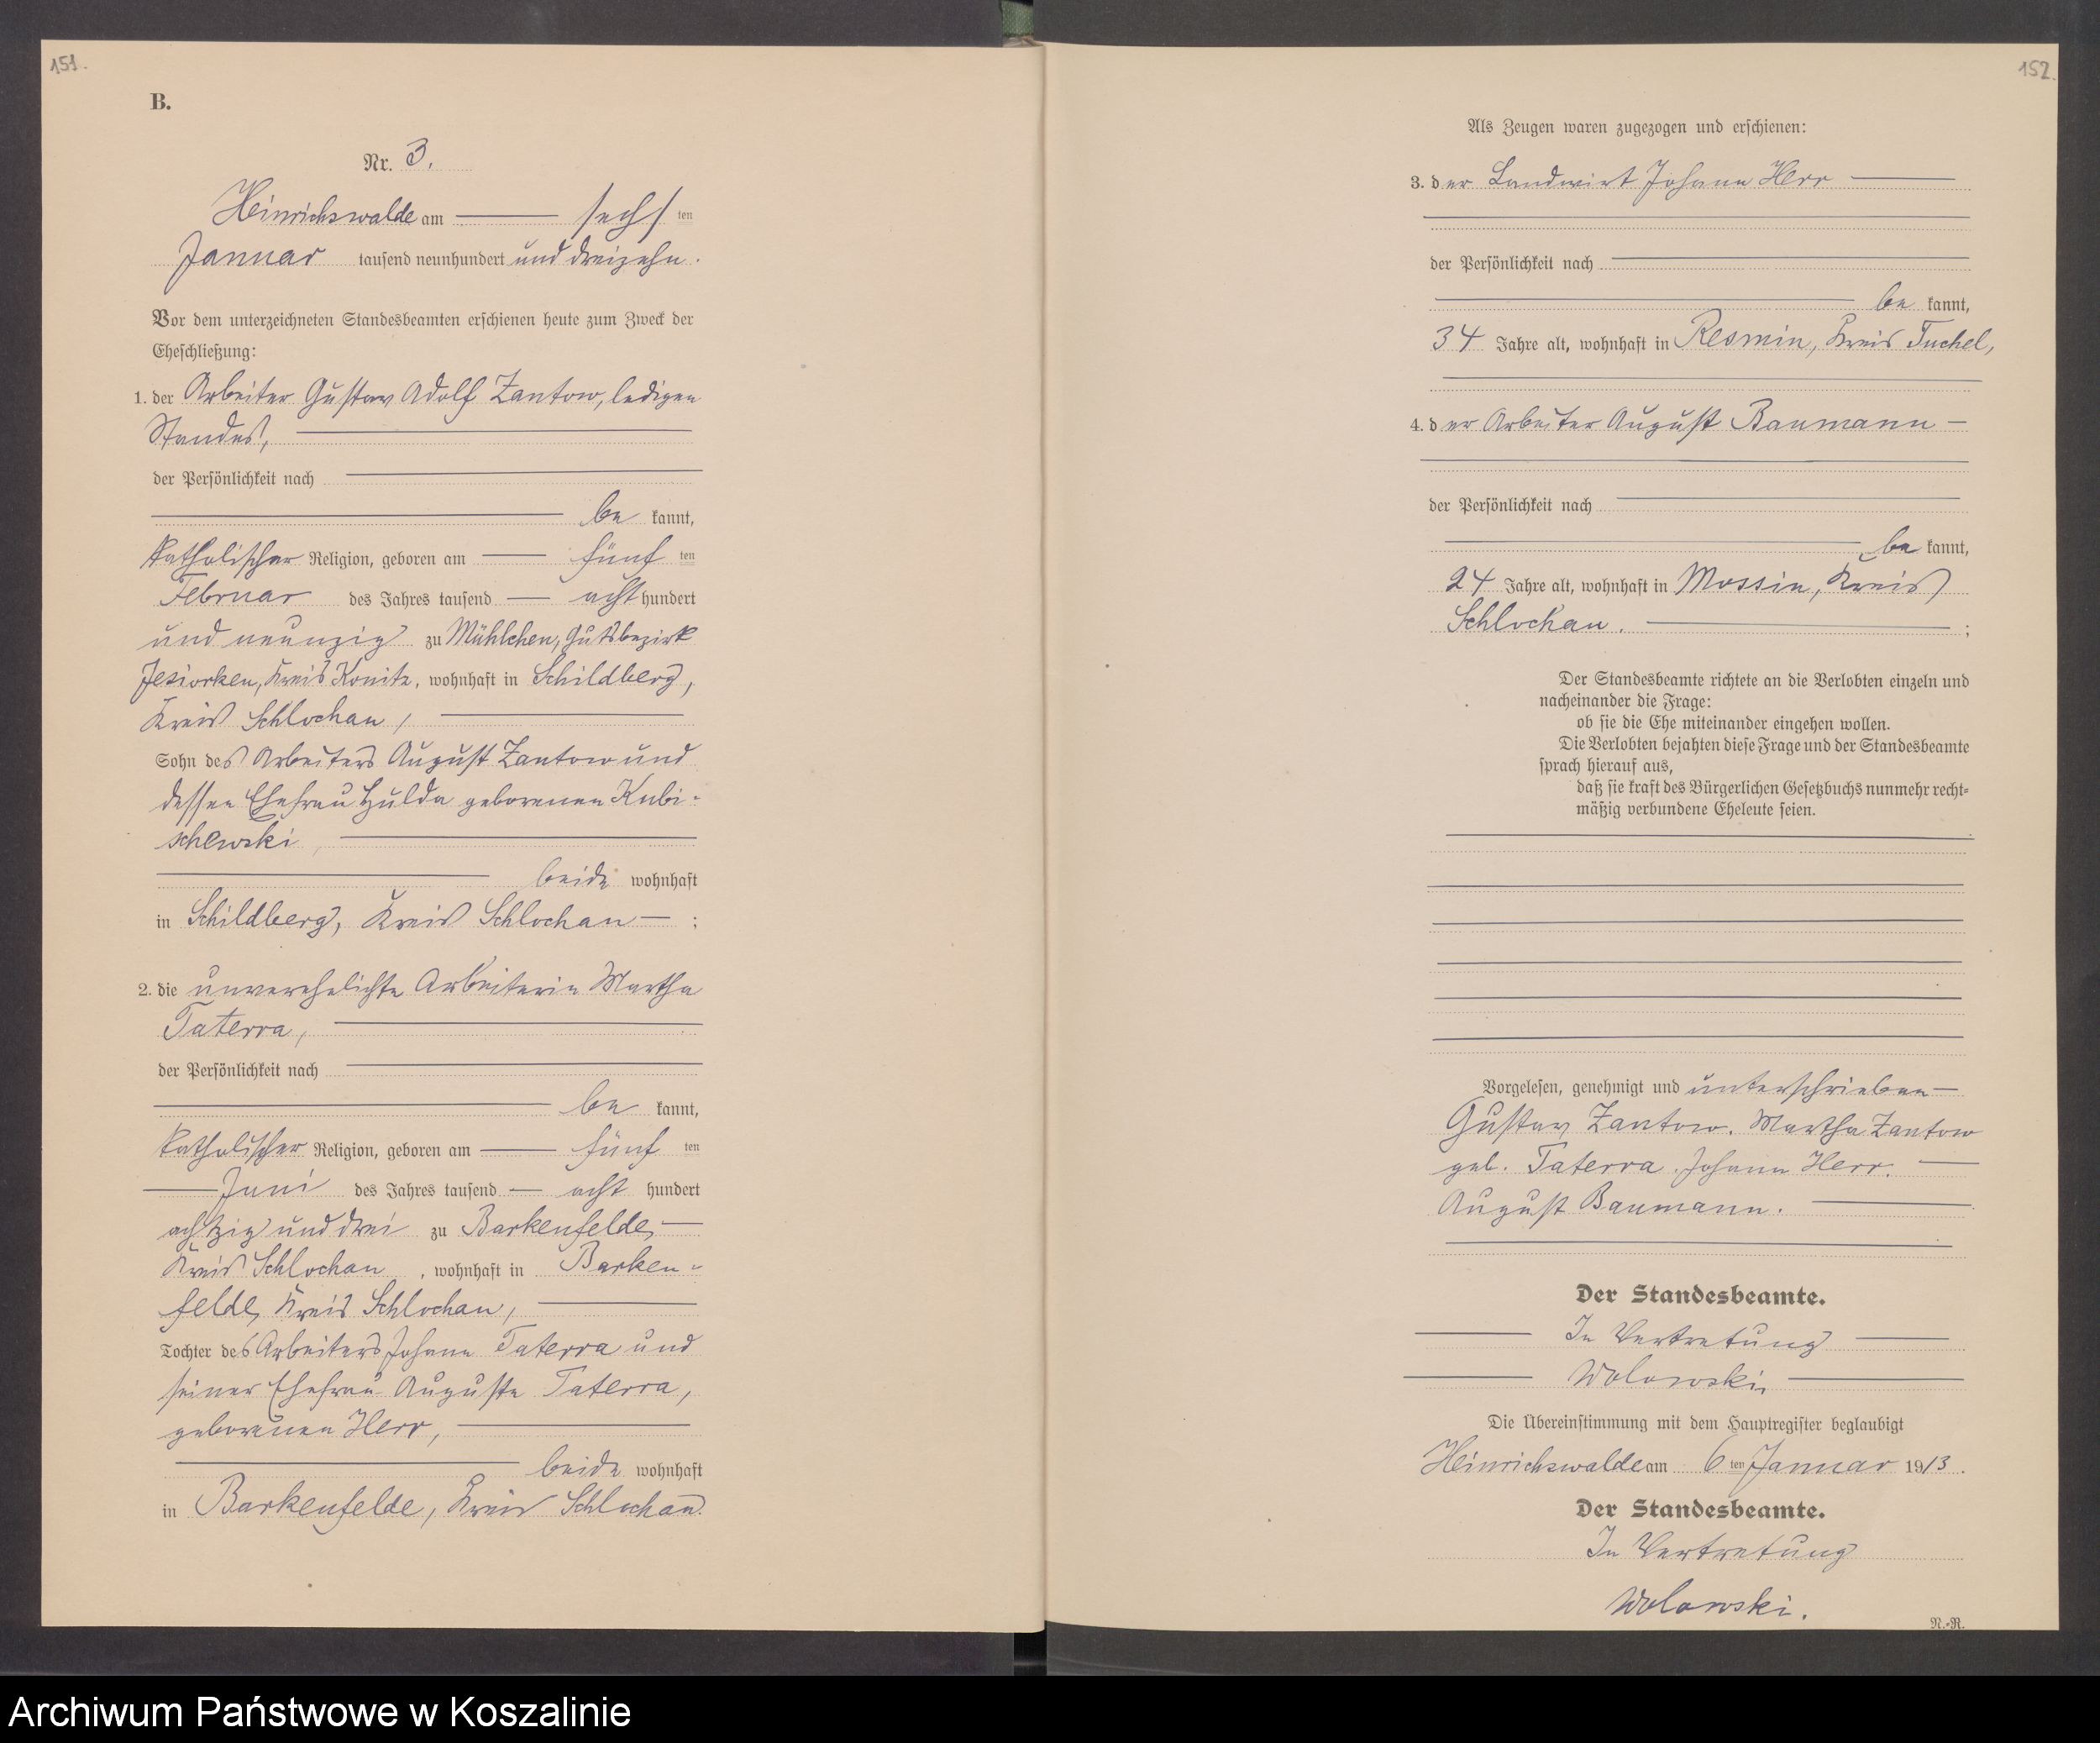 151.
B.
Nr. 3.
Heinrichswalde am sechsten
Januar tausend neunhundert und dreizehn.
Vor dem unterzeichneten Standesbeamten erschienen heute zum Zweck der
Eheschließung:
1. der Arbeiter Gustav Adolf Zantow, ledigen
Standes,
der Persönlichkeit nach
be kannt,
katholischer Religion, geboren am fünf ten
Februar des Jahres tausend acht hundert
und neunzig zu Mühlchen, Gutsbezirk
Jesiorken, Kreis Konitz, wohnhaft in Schildberg,
Kreis Schlochau,
Sohn des Arbeiters August Zantow und
dessen Ehefrau Hulda geborenen Kubi-
schewski,
beide wohnhaft
in Schildberg, Kreis Schlochau ;
2. die unverehelichte Arbeiterin Martha
Taterra,
der Persönlichkeit nach
be kannt,
katholischer Religion, geboren am fünf ten
Juni des Jahres tausend acht hundert
achtzig und drei zu Barkenfelde,
Kreis Schlochau, wohnhaft in Barken-
felde, Kreis Schlochau,
Tochter des Arbeiters Johann Taterra und
seiner Ehefrau Auguste Taterra,
geborenen Herr,
beide wohnhaft
in Barkenfelde, Kreis Schlochau.
152.
Als Zeugen waren zugezogen und erschienen:
3. der Landwirt Johann Herr
der Persönlichkeit nach
be kannt,
34 Jahre alt, wohnhaft in Resmin, Kreis Tuchel,
4. der Arbeiter August Baumann
der Persönlichkeit nach
be kannt,
24 Jahre alt, wohnhaft in Mossin, Kreis
Schlochau. ;
Der Standesbeamte richtete an die Verlobten einzeln und
nacheinander die Frage:
ob sie die Ehe miteinander eingehen wollen.
Die Verlobten bejahten diese Frage und der Standesbeamte
sprach hierauf aus,
daß sie kraft des Bürgerlichen Gesetzbuchs nunmehr recht-
mäßig verbundene Eheleute seien.
Vorgelesen, genehmigt und unterschrieben
Gustav Zantow. Martha Zantow
geb. Taterra. Johann Herr.
August Baumann.
Der Standesbeamte.
In Vertretung
Wolowski.
Die Übereinstimmung mit dem Hauptregister beglaubigt
Heinrichswalde am 6 ten Januar 1913.
Der Standesbeamte.
In Vertretung
Wolowski.
N.-R.
Archiwum Państwowe w Koszalinie